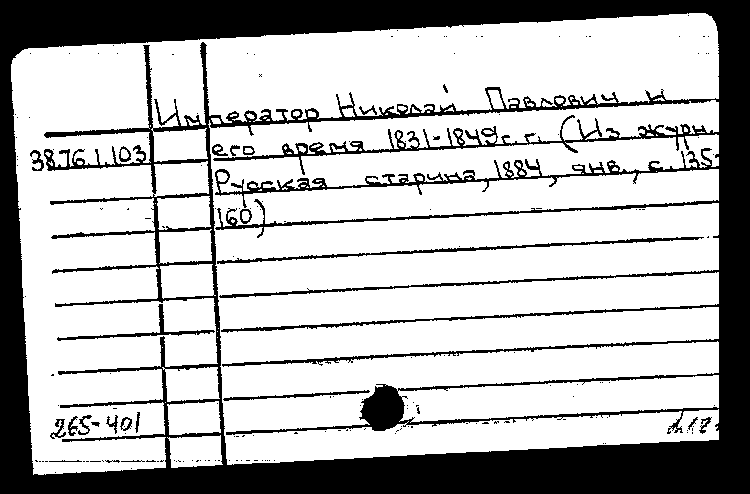 Император Николай Павлович и
38.76.1.103 его время 1831-1849г.г. (Из журн.
Русская старина, 1884, янв., с. 135-
160)
265-401